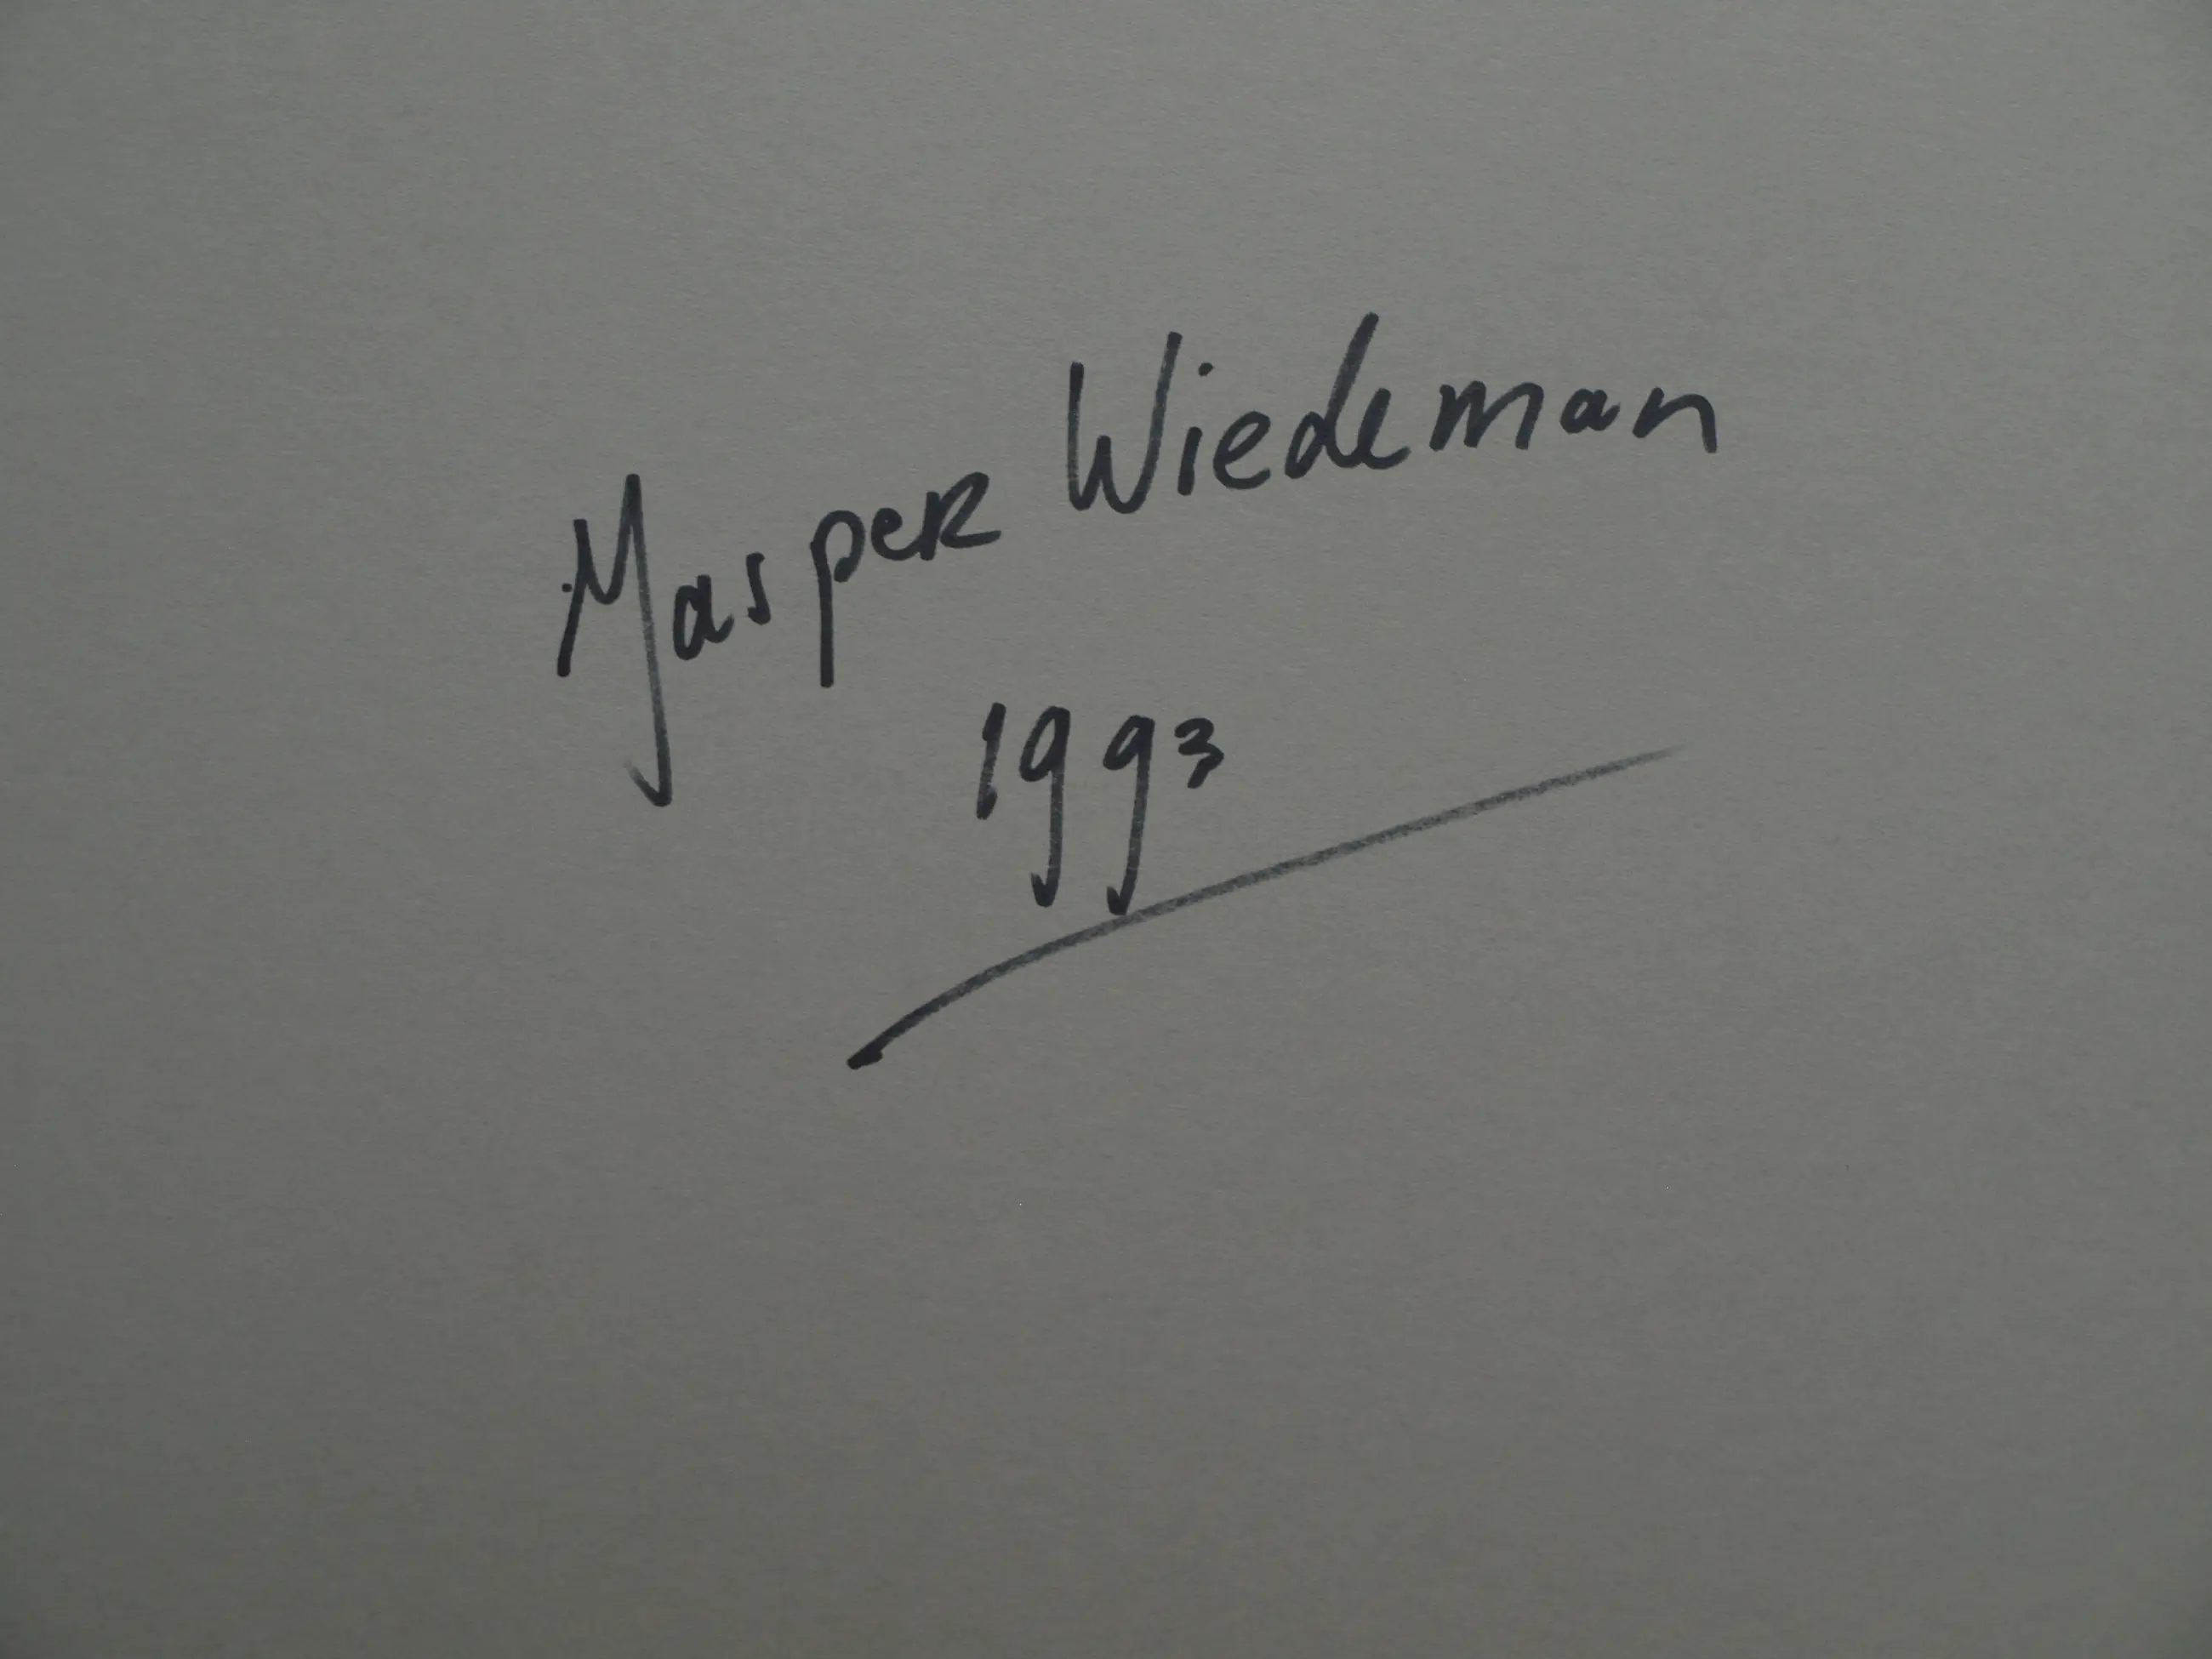 Yasper Wiedeman
1993